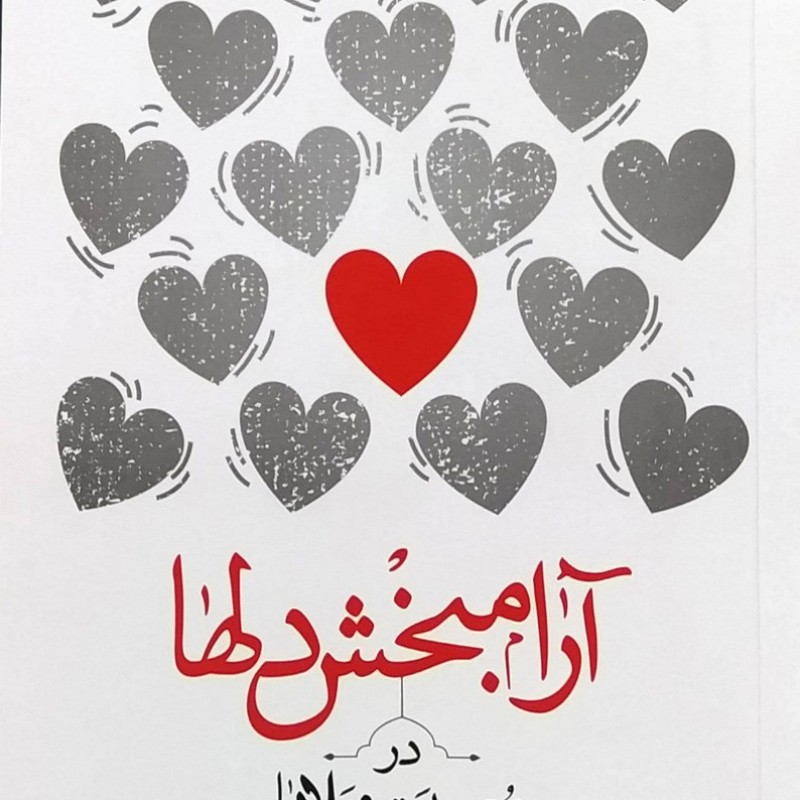 آرامبخش دلها
در